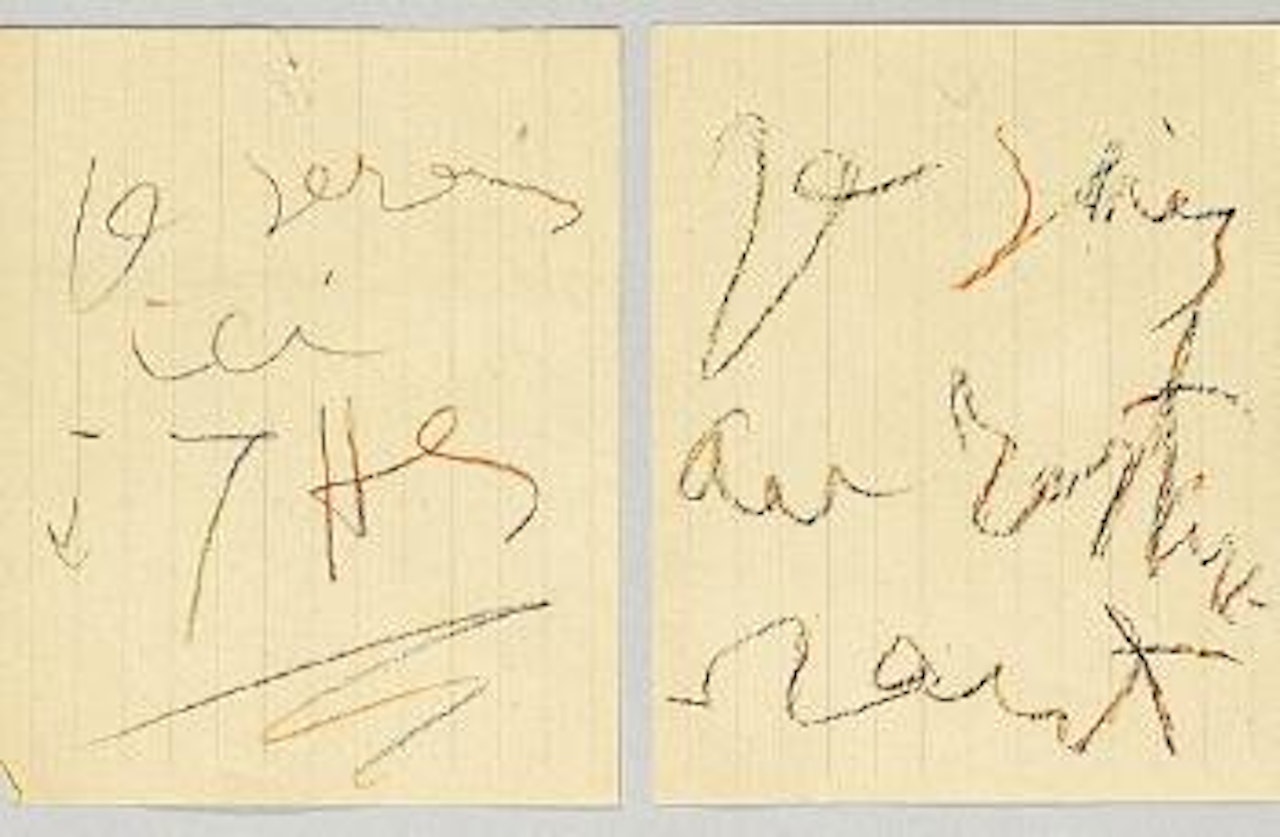 Je serais
ici
7 Hes
Je suis
au restau
rant